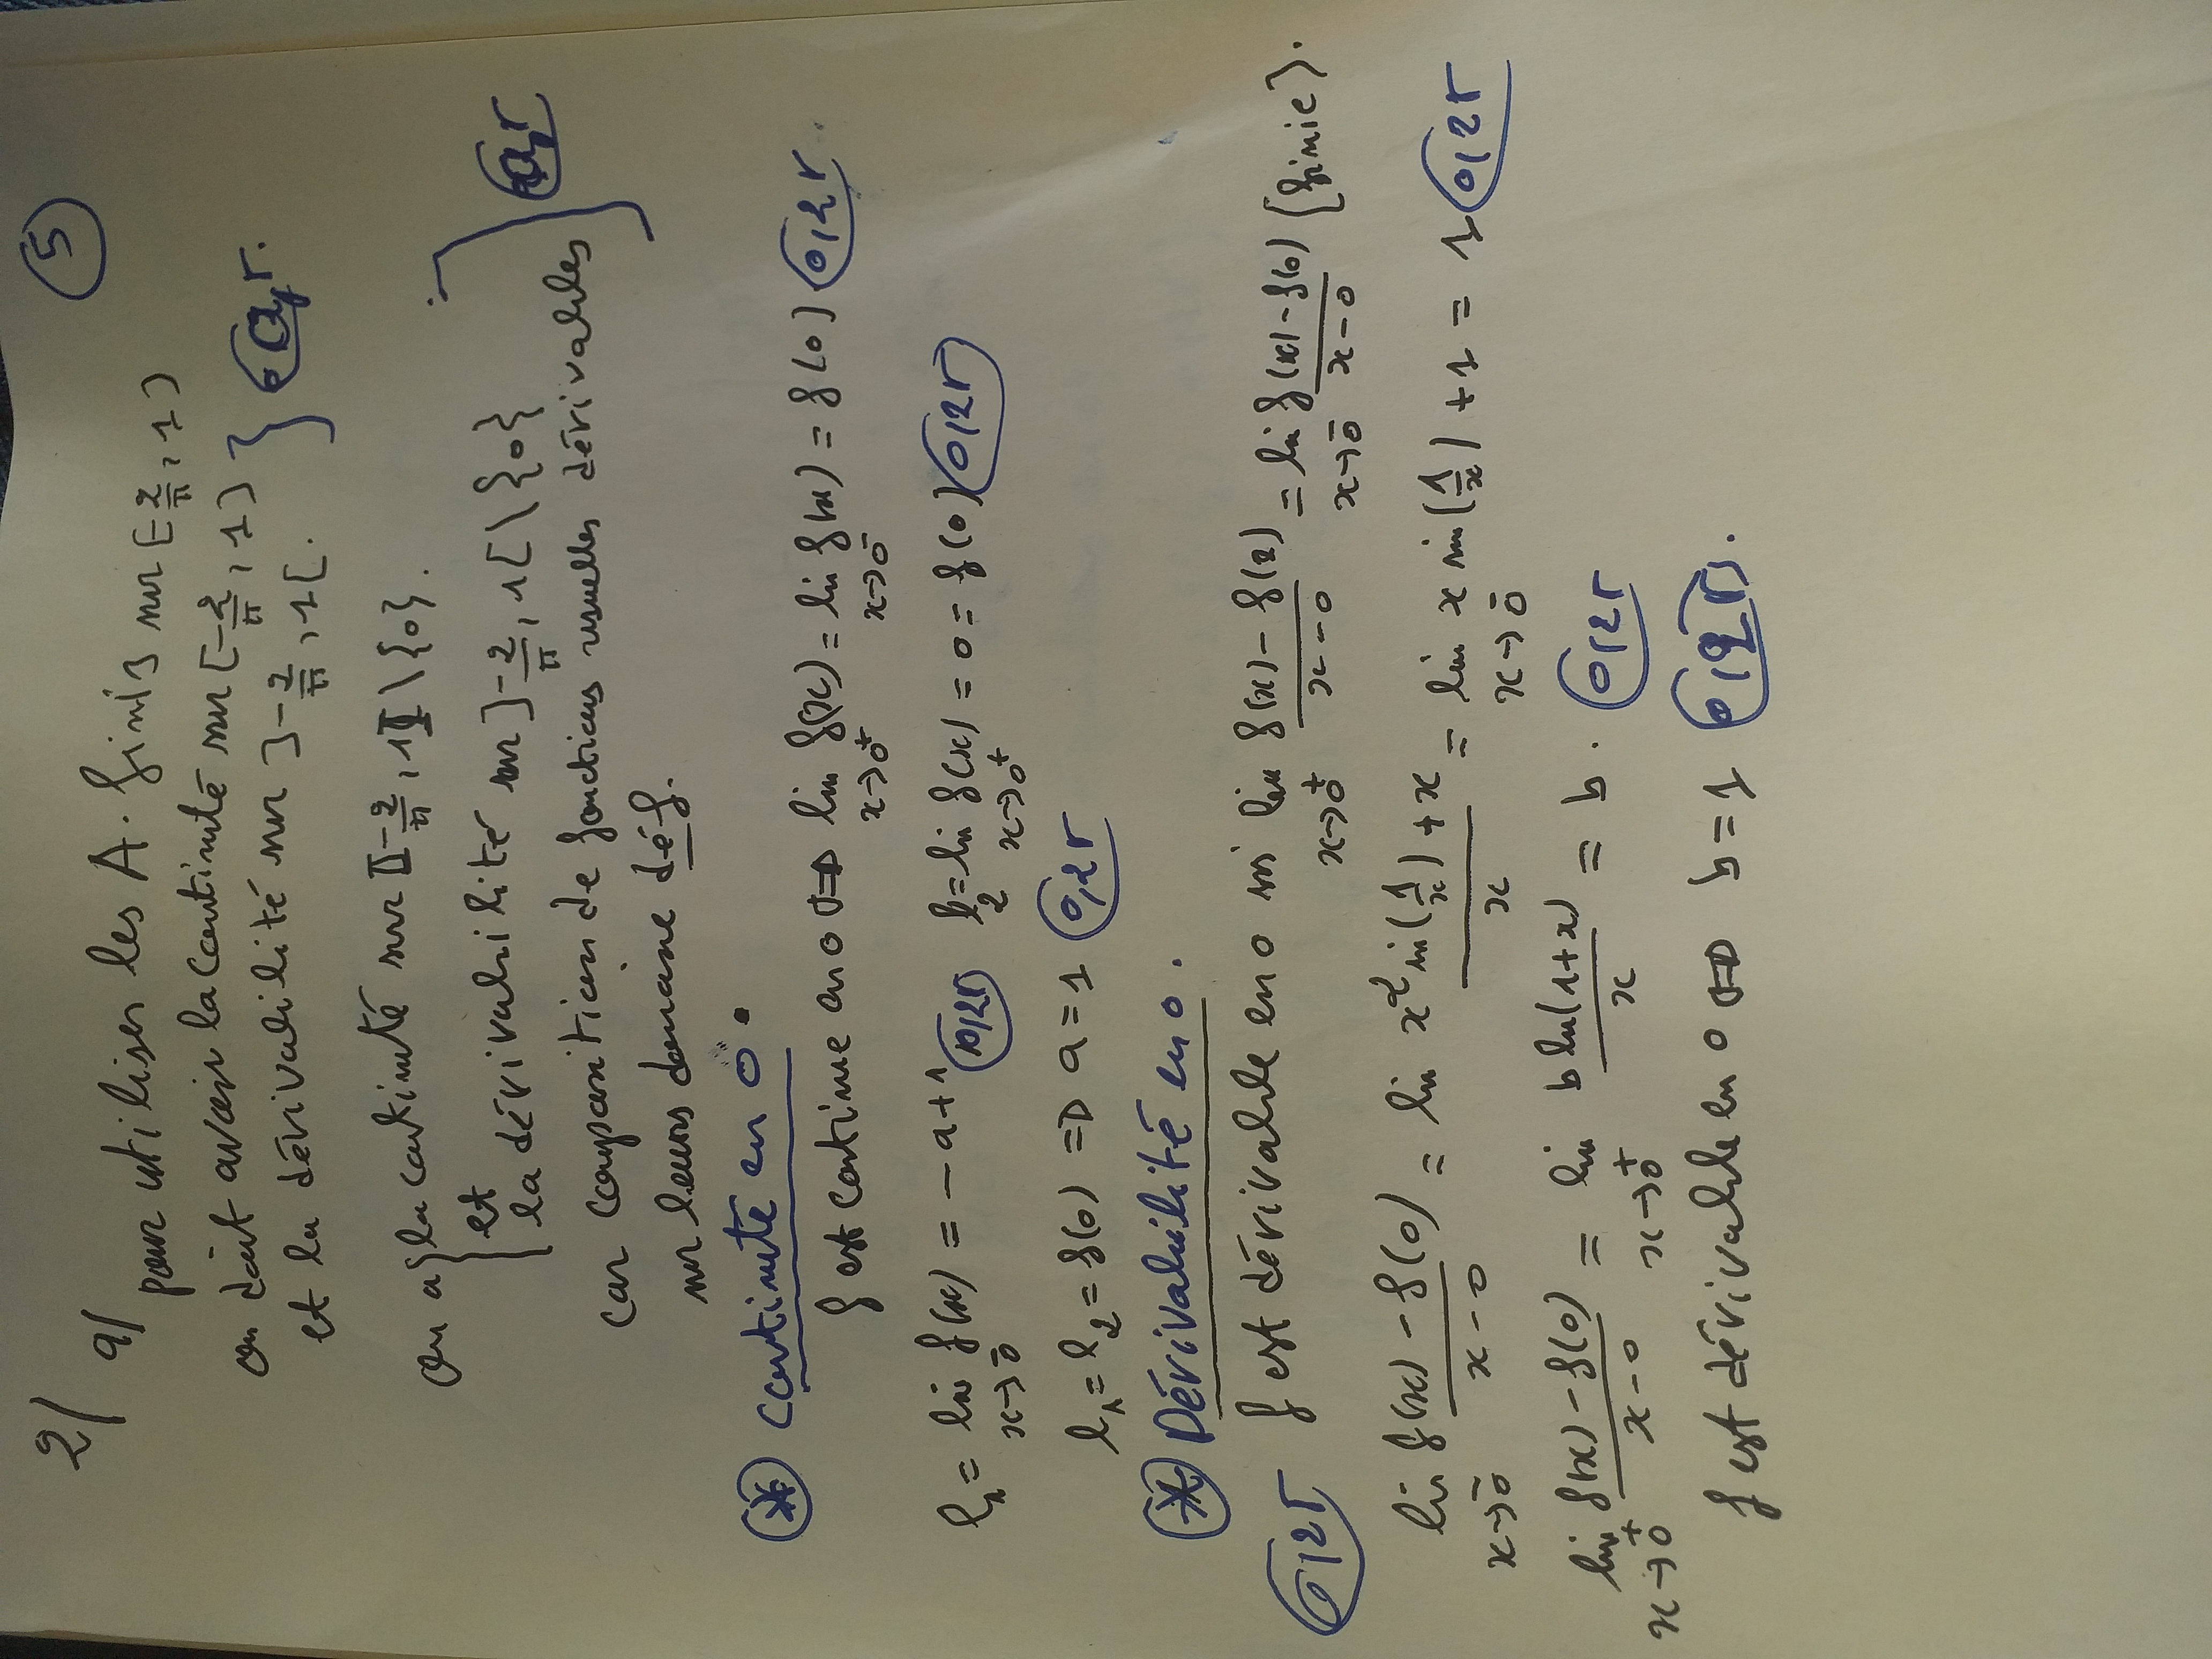 5
2/
a/ pour utiliser les A. finis sur [-2/π, 1]
on doit avoir la continuité sur [-2/π, 1]
et la dérivabilité sur ]-2/π, 1[.
on a { la continuité sur [-2/π, 1] \ {0}.
et
la dérivabilité sur ]-2/π, 1[ \ {0}
car composition de fonctions usuelles dérivables
sur leurs domaine déf.
* Continuité en 0.
f est continue en 0 ⇔ lim x→0+ f(x) = lim x→0- f(x) = f(0) 0,25
l1 = lim x→0- f(x) = -a+1 0,25 l2 = lim x→0+ f(x) = 0 = f(0) 0,25
l1 = l2 = f(0) ⇒ a = 1 0,25
* Dérivabilité en 0.
0,25 f est dérivable en 0 ssi lim x→0+ (f(x) - f(0))/(x-0) = lim x→0- (f(x) - f(0))/(x-0) (finie).
lim x→0- (f(x) - f(0))/(x-0) = lim (x² sin(1/x) + x)/x = lim x→0- x sin(1/x) + 1 = 1 0,25
lim x→0+ (f(x) - f(0))/(x-0) = lim x→0+ b ln(1+x)/x = b. 0,25
f est dérivable en 0 ⇔ b = 1 0,25.